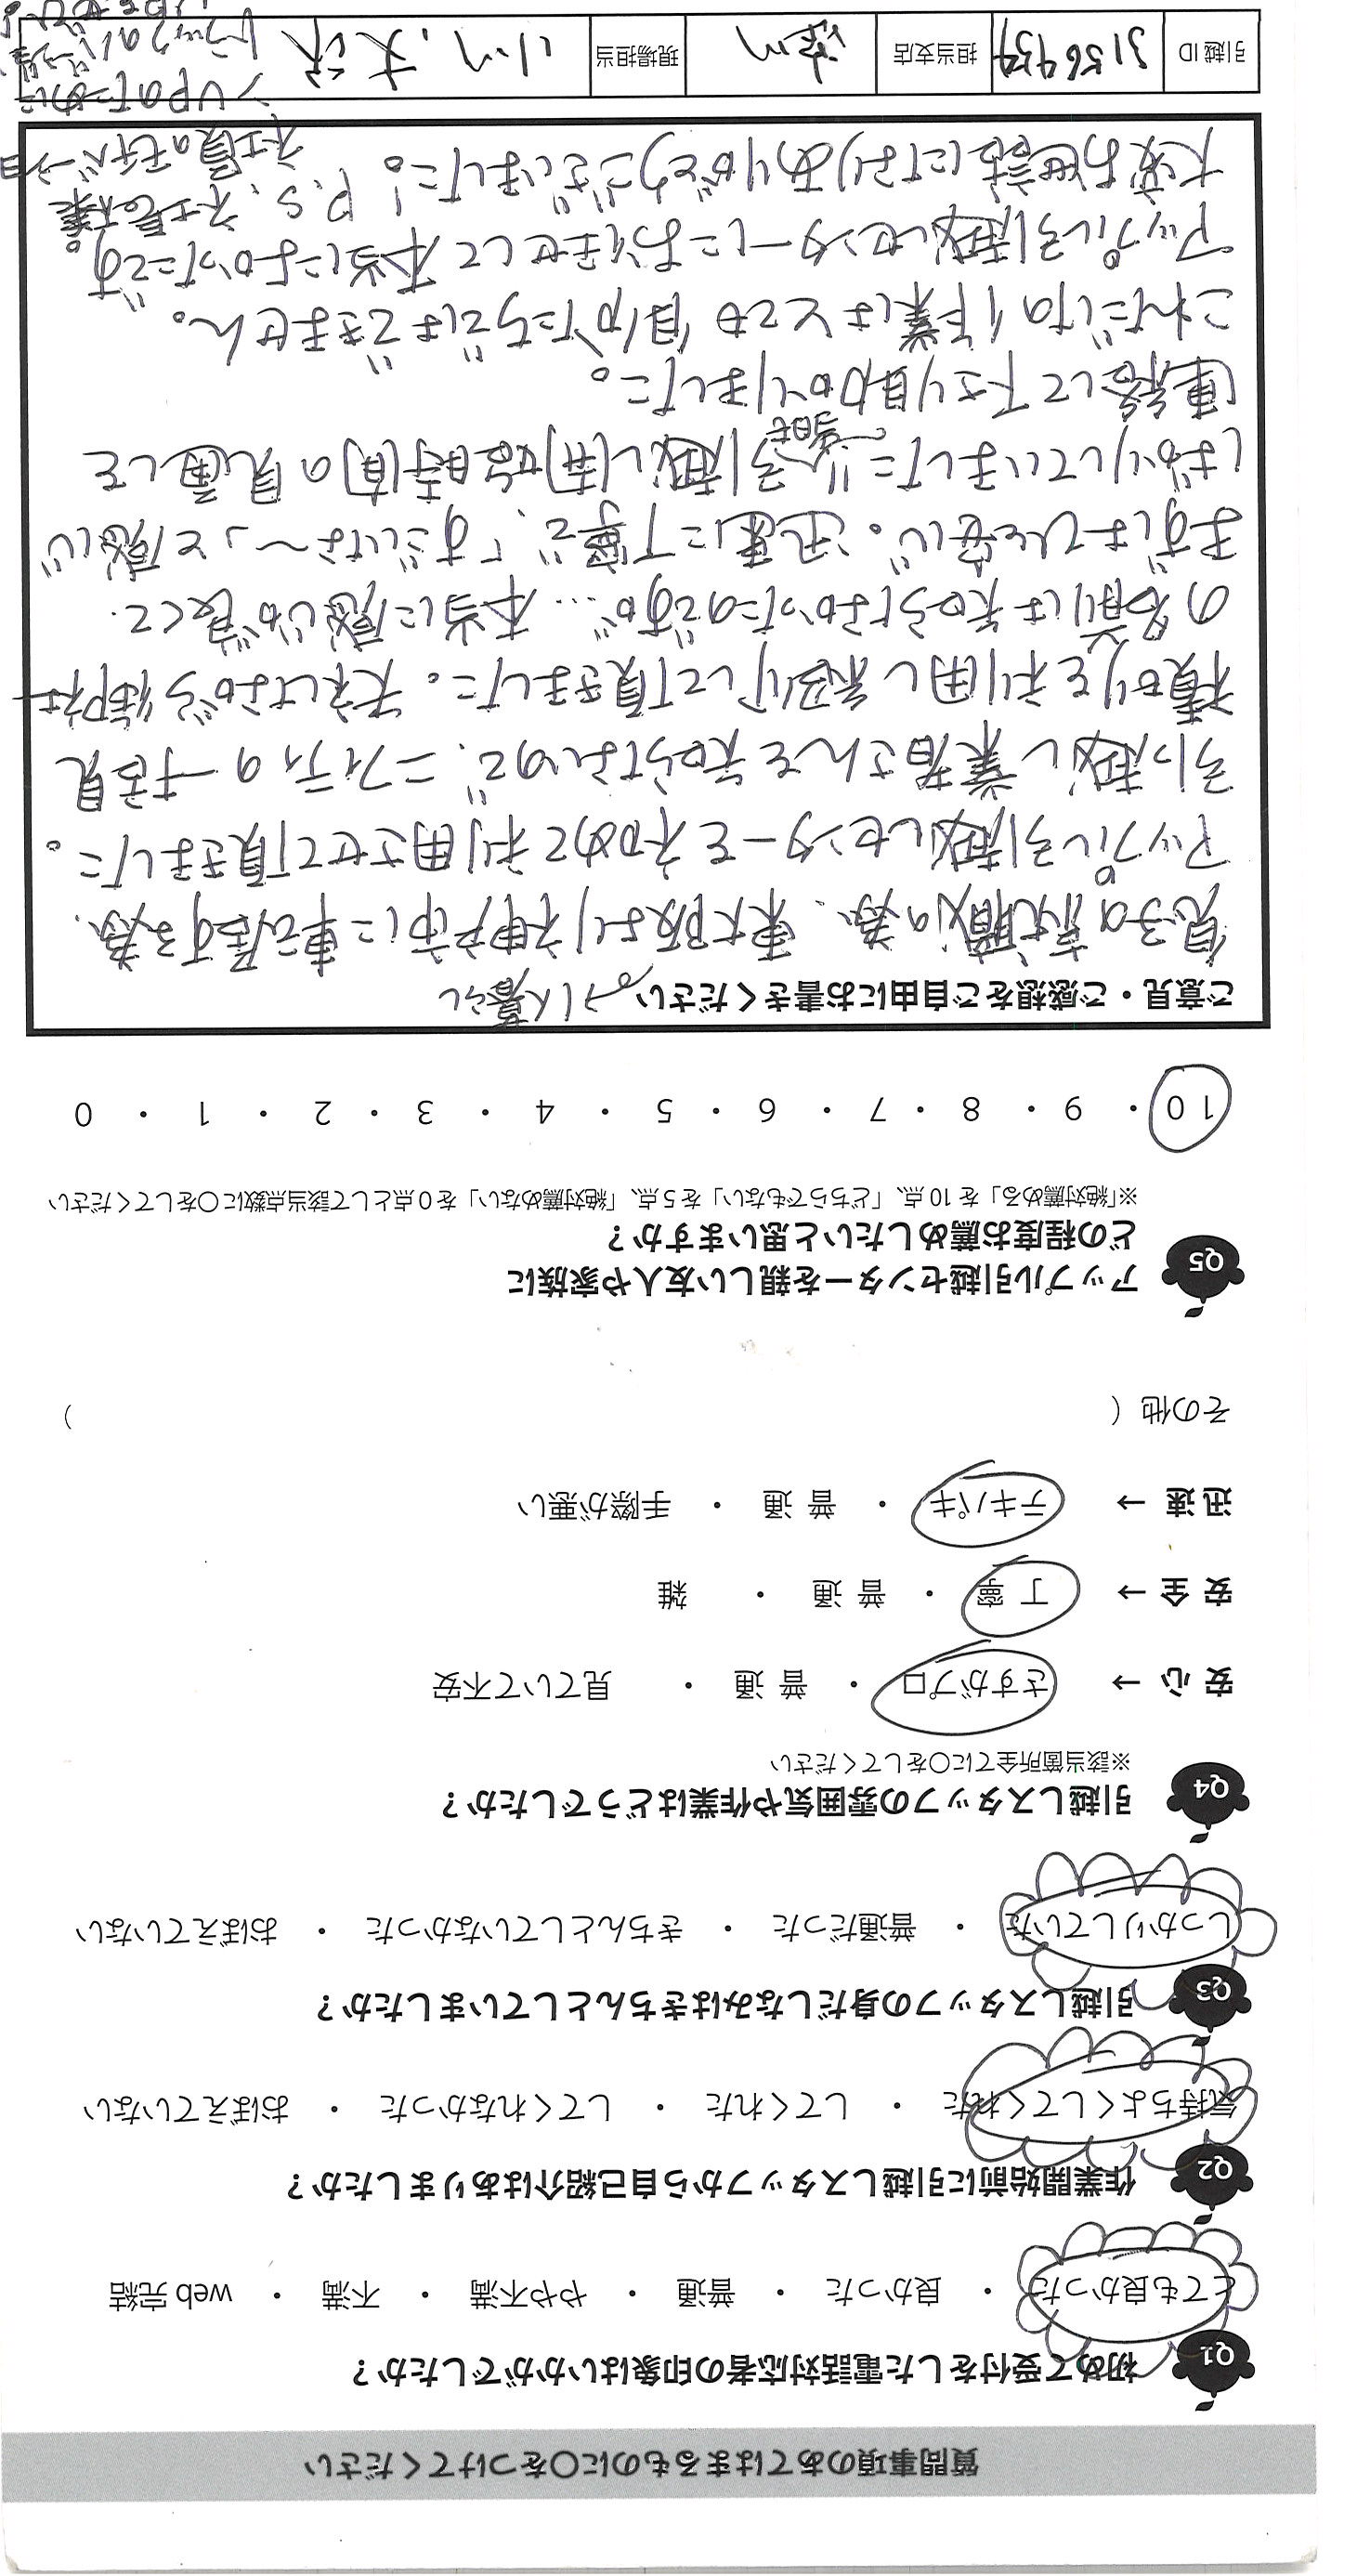 質問事項のあてはまるものに〇をつけてください
Q1 初めて受付をした電話対応者の印象はいかがでしたか？
とても良かった ・ 良かった ・ 普通 ・ やや不満 ・ 不満 ・ web 完結
Q2 作業開始前に引越しスタッフから自己紹介はありましたか？
気持ちよくしてくれた ・ してくれた ・ してくれなかった ・ おぼえていない
Q3 引越しスタッフの身だしなみはきちんとしていましたか？
しっかりしていた ・ 普通だった ・ きちんとしていなかった ・ おぼえていない
Q4 引越しスタッフの雰囲気や作業はどうでしたか？
※該当箇所全てに〇をしてください
安 心 → さすがプロ ・ 普 通 ・ 見ていて不安
安 全 → 丁 寧 ・ 普 通 ・ 雑
迅 速 → テキパキ ・ 普 通 ・ 手際が悪い
その他 （ ）
Q5 アップル引越センターを親しい友人や家族に
どの程度お薦めしたいと思いますか？
※「絶対薦める」を 10 点、「どちらでもない」を 5 点、「絶対薦めない」を 0 点として該当点数に〇をしてください
10 ・ 9 ・ 8 ・ 7 ・ 6 ・ 5 ・ 4 ・ 3 ・ 2 ・ 1 ・ 0
ご意見・ご感想をご自由にお書きください
1人暮らし
息子の就職の為、東大阪より神戸市に転居する為、
アップル引越しセンターを初めて利用させて頂きました。
引っ越し業者さんを知らないので、ニフティの一括見
積りを利用し絞りして頂きました。失礼ながら御社
の名前は知らなかったのですが… 本当に感じが良くて、
まずはひと安心。迅速に丁寧で、「すごいな〜」と感心
ばかりしていました!! 引越し開始時間の見通しを
当日も
連絡して下さり助かりました。
これだけの作業はとても自分たちではできません。
アップル引越しセンターにお任せして本当によかったです。
大変お世話になりありがとうございました。! P.S. 社長様
社員のモチベーショ
ンUPのために
引越 ID 3156937 担当支店 現場担当 小川、